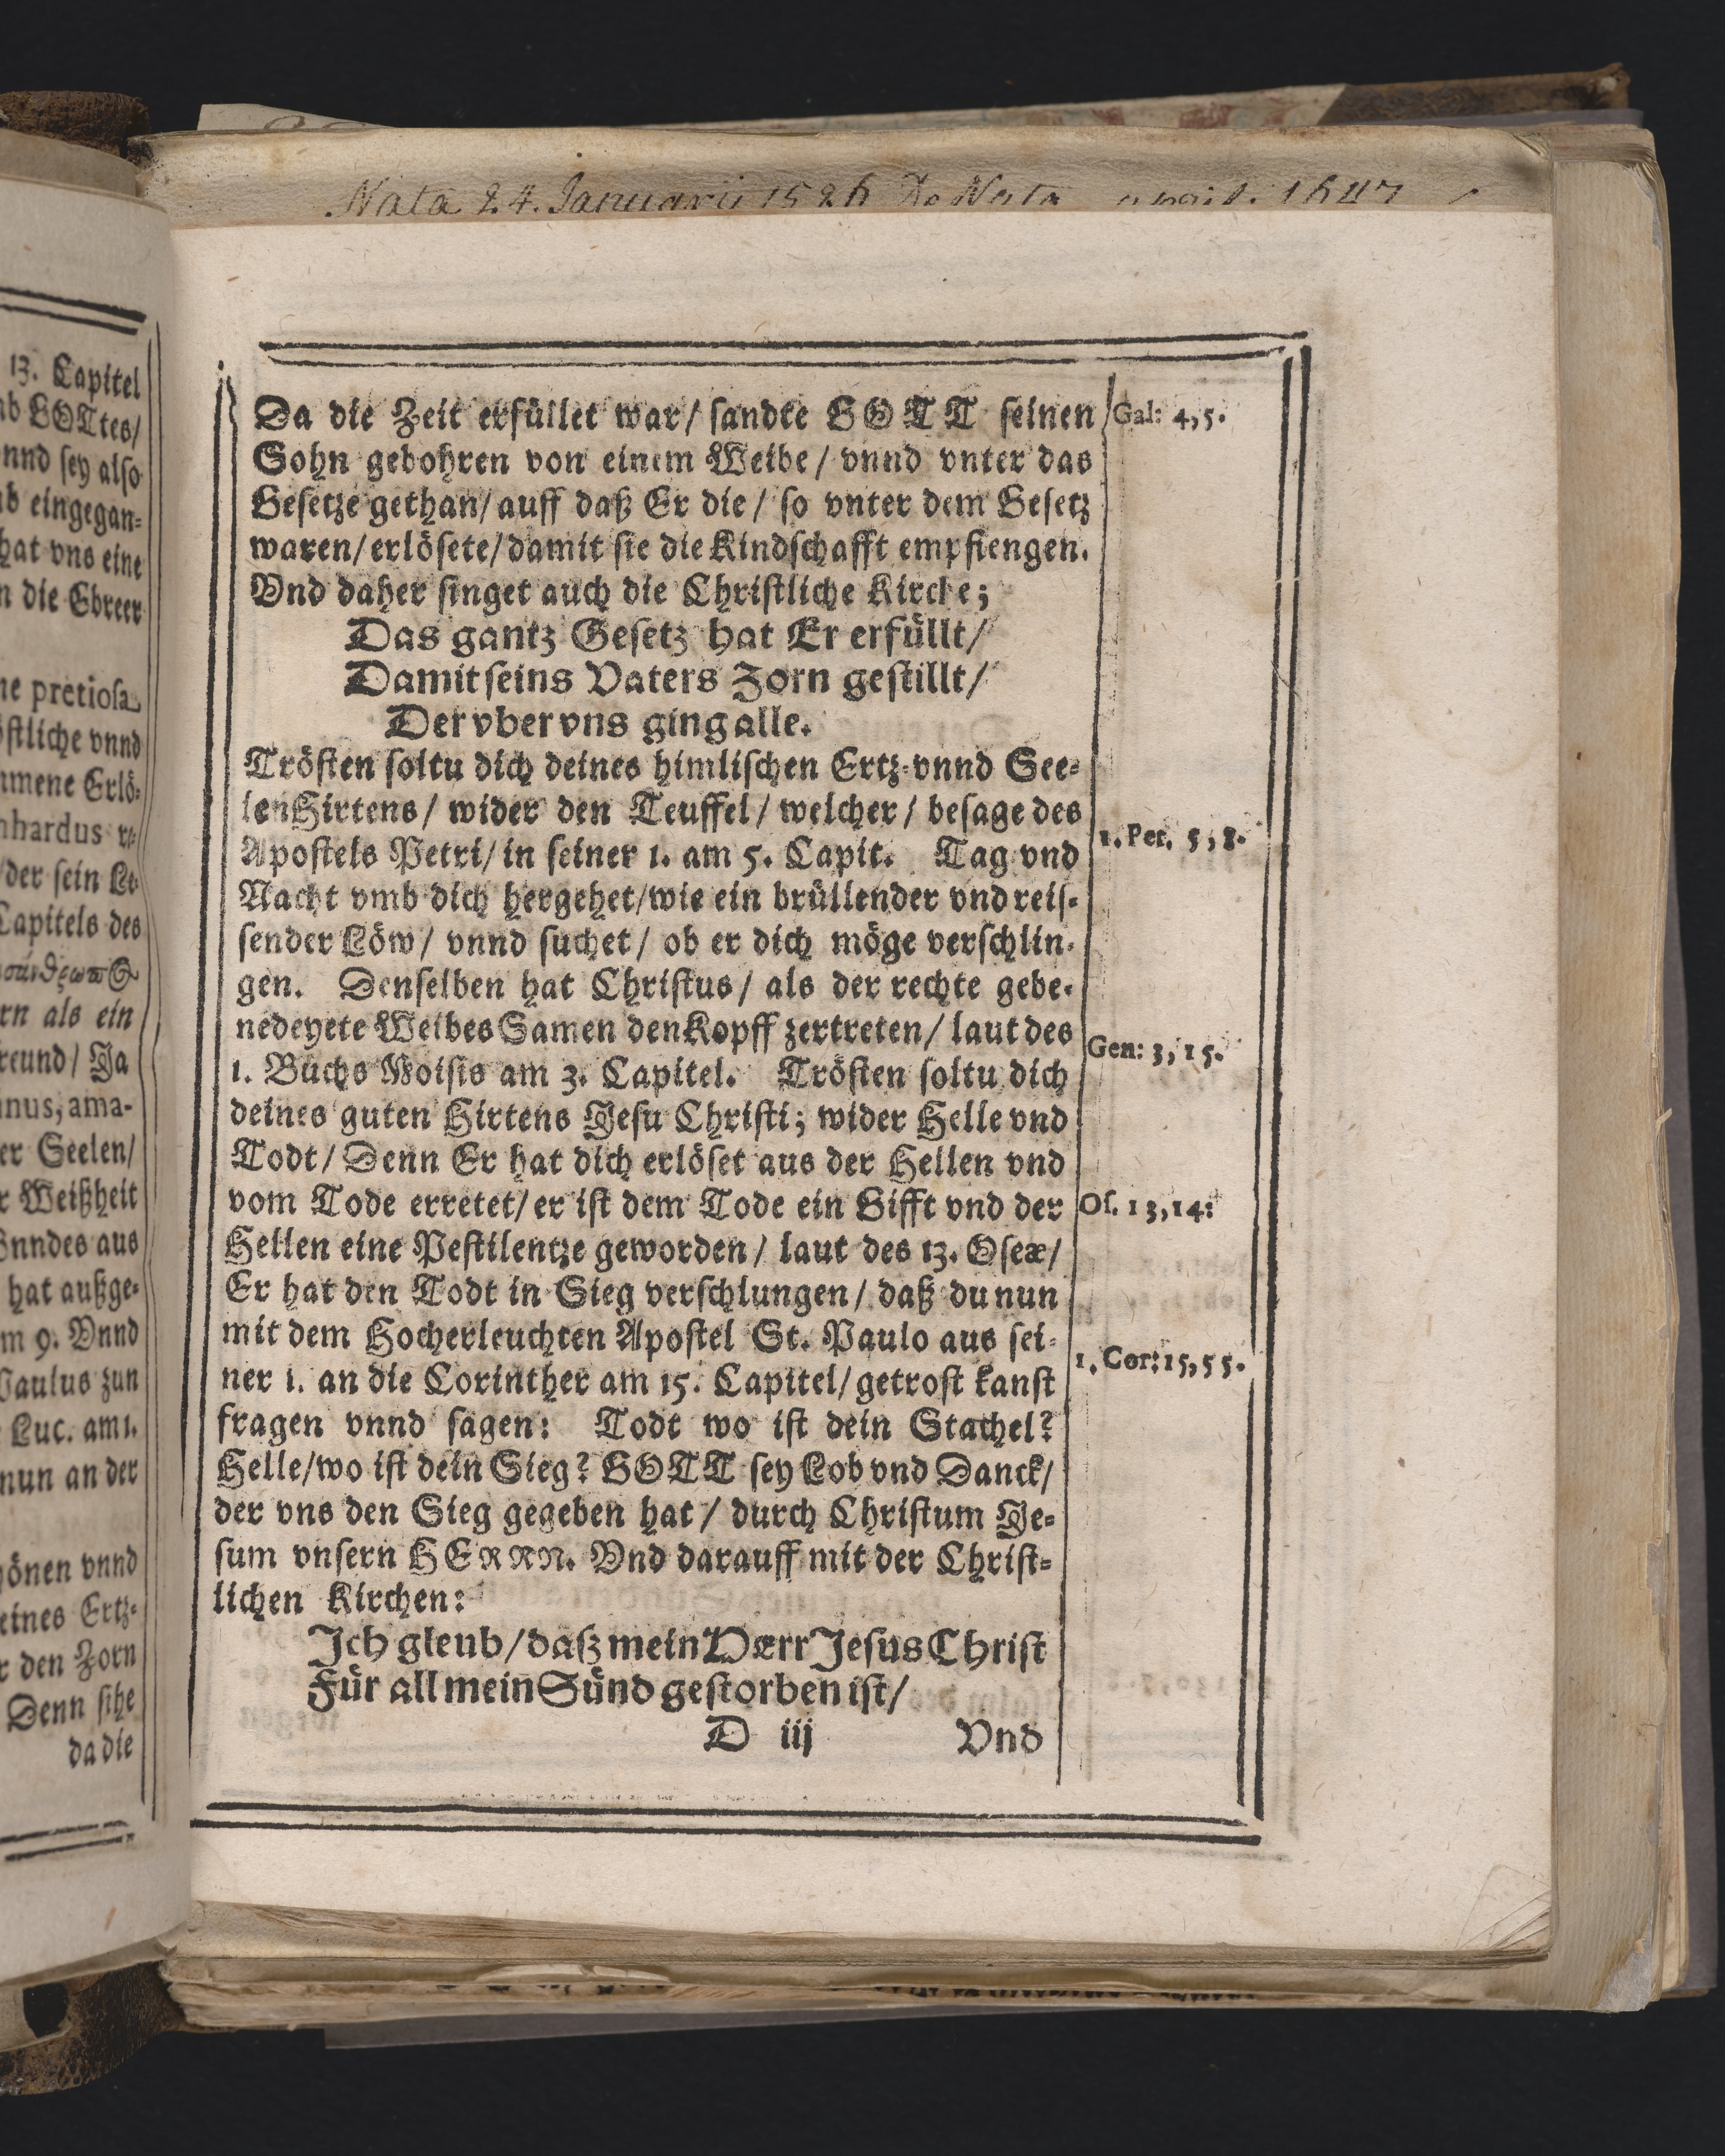 Nata 24. Januarii
13. Capitel
GOTtes/
nnd sey also
eingegan-
hat vns eine
die Ebreer
pretiosa
stliche vnnd
mmene Erlö-
hardus
/der sein Le-
Capitels des
rn als ein
reund/ Ja
nus, ama-
er Seelen/
r Weißheit
Bundes aus
hat außge-
m 9. Vnnd
Paulus zun
Luc. am 1.
nun an der
önen vnnd
eines Ertz-
r den Zorn
Denn sihe
da die
Da die Zeit erfüllet war/ sandte GOTT seinen
Sohn gebohren von einem Weibe/ vnnd vnter das
Gesetze gethan/ auff daß Er die/ so vnter dem Gesetz
waren/ erlösete/ damit sie die Kindschafft empfiengen.
Vnd daher singet auch die Christliche Kirche;
Das gantz Gesetz hat Er erfüllt/
Damit seins Vaters Zorn gestillt/
Der vber vns ging alle.
Trösten soltu dich deines himlischen Ertz-vnnd See-
lenHirtens/ wider den Teuffel/ welcher/ besage des
Apostels Petri/ in seiner 1. am 5. Capit. Tag vnd
Nacht vmb dich hergehet/ wie ein brüllender vnd reis-
sender Löw/ vnnd suchet/ ob er dich möge verschlin-
gen. Denselben hat Christus/ als der rechte gebe-
nedeyete WeibesSamen den Kopff zertreten/ laut des
1. Buchs Moisis am 3. Capitel. Trösten soltu dich
deines guten Hirtens Jesu Christi; wider Helle vnd
Todt/ Denn Er hat dich erlöset aus der Hellen vnd
vom Tode erretet/ er ist dem Tode ein Gifft vnd der
Hellen eine Pestilentze geworden/ laut des 13. Oseæ/
Er hat den Todt in Sieg verschlungen/ daß du nun
mit dem Hocherleuchten Apostel St. Paulo aus sei-
ner 1. an die Corinther am 15. Capitel/ getrost kanst
fragen vnnd sagen: Todt wo ist dein Stachel?
Helle/ wo ist dein Sieg? GOTT sey Lob vnd Danck/
der vns den Sieg gegeben hat/ durch Christum Je-
sum vnsern HERRN. Vnd darauff mit der Christ-
lichen Kirchen:
Ich gleub/ daß mein HErr Jesus Christ
Für all mein Sünd gestorben ist/
D iij Vnd
Gal: 4, 5.
1. Pet. 5, 8.
Gen: 3, 15.
Os. 13, 14:
1. Cor: 15, 55.